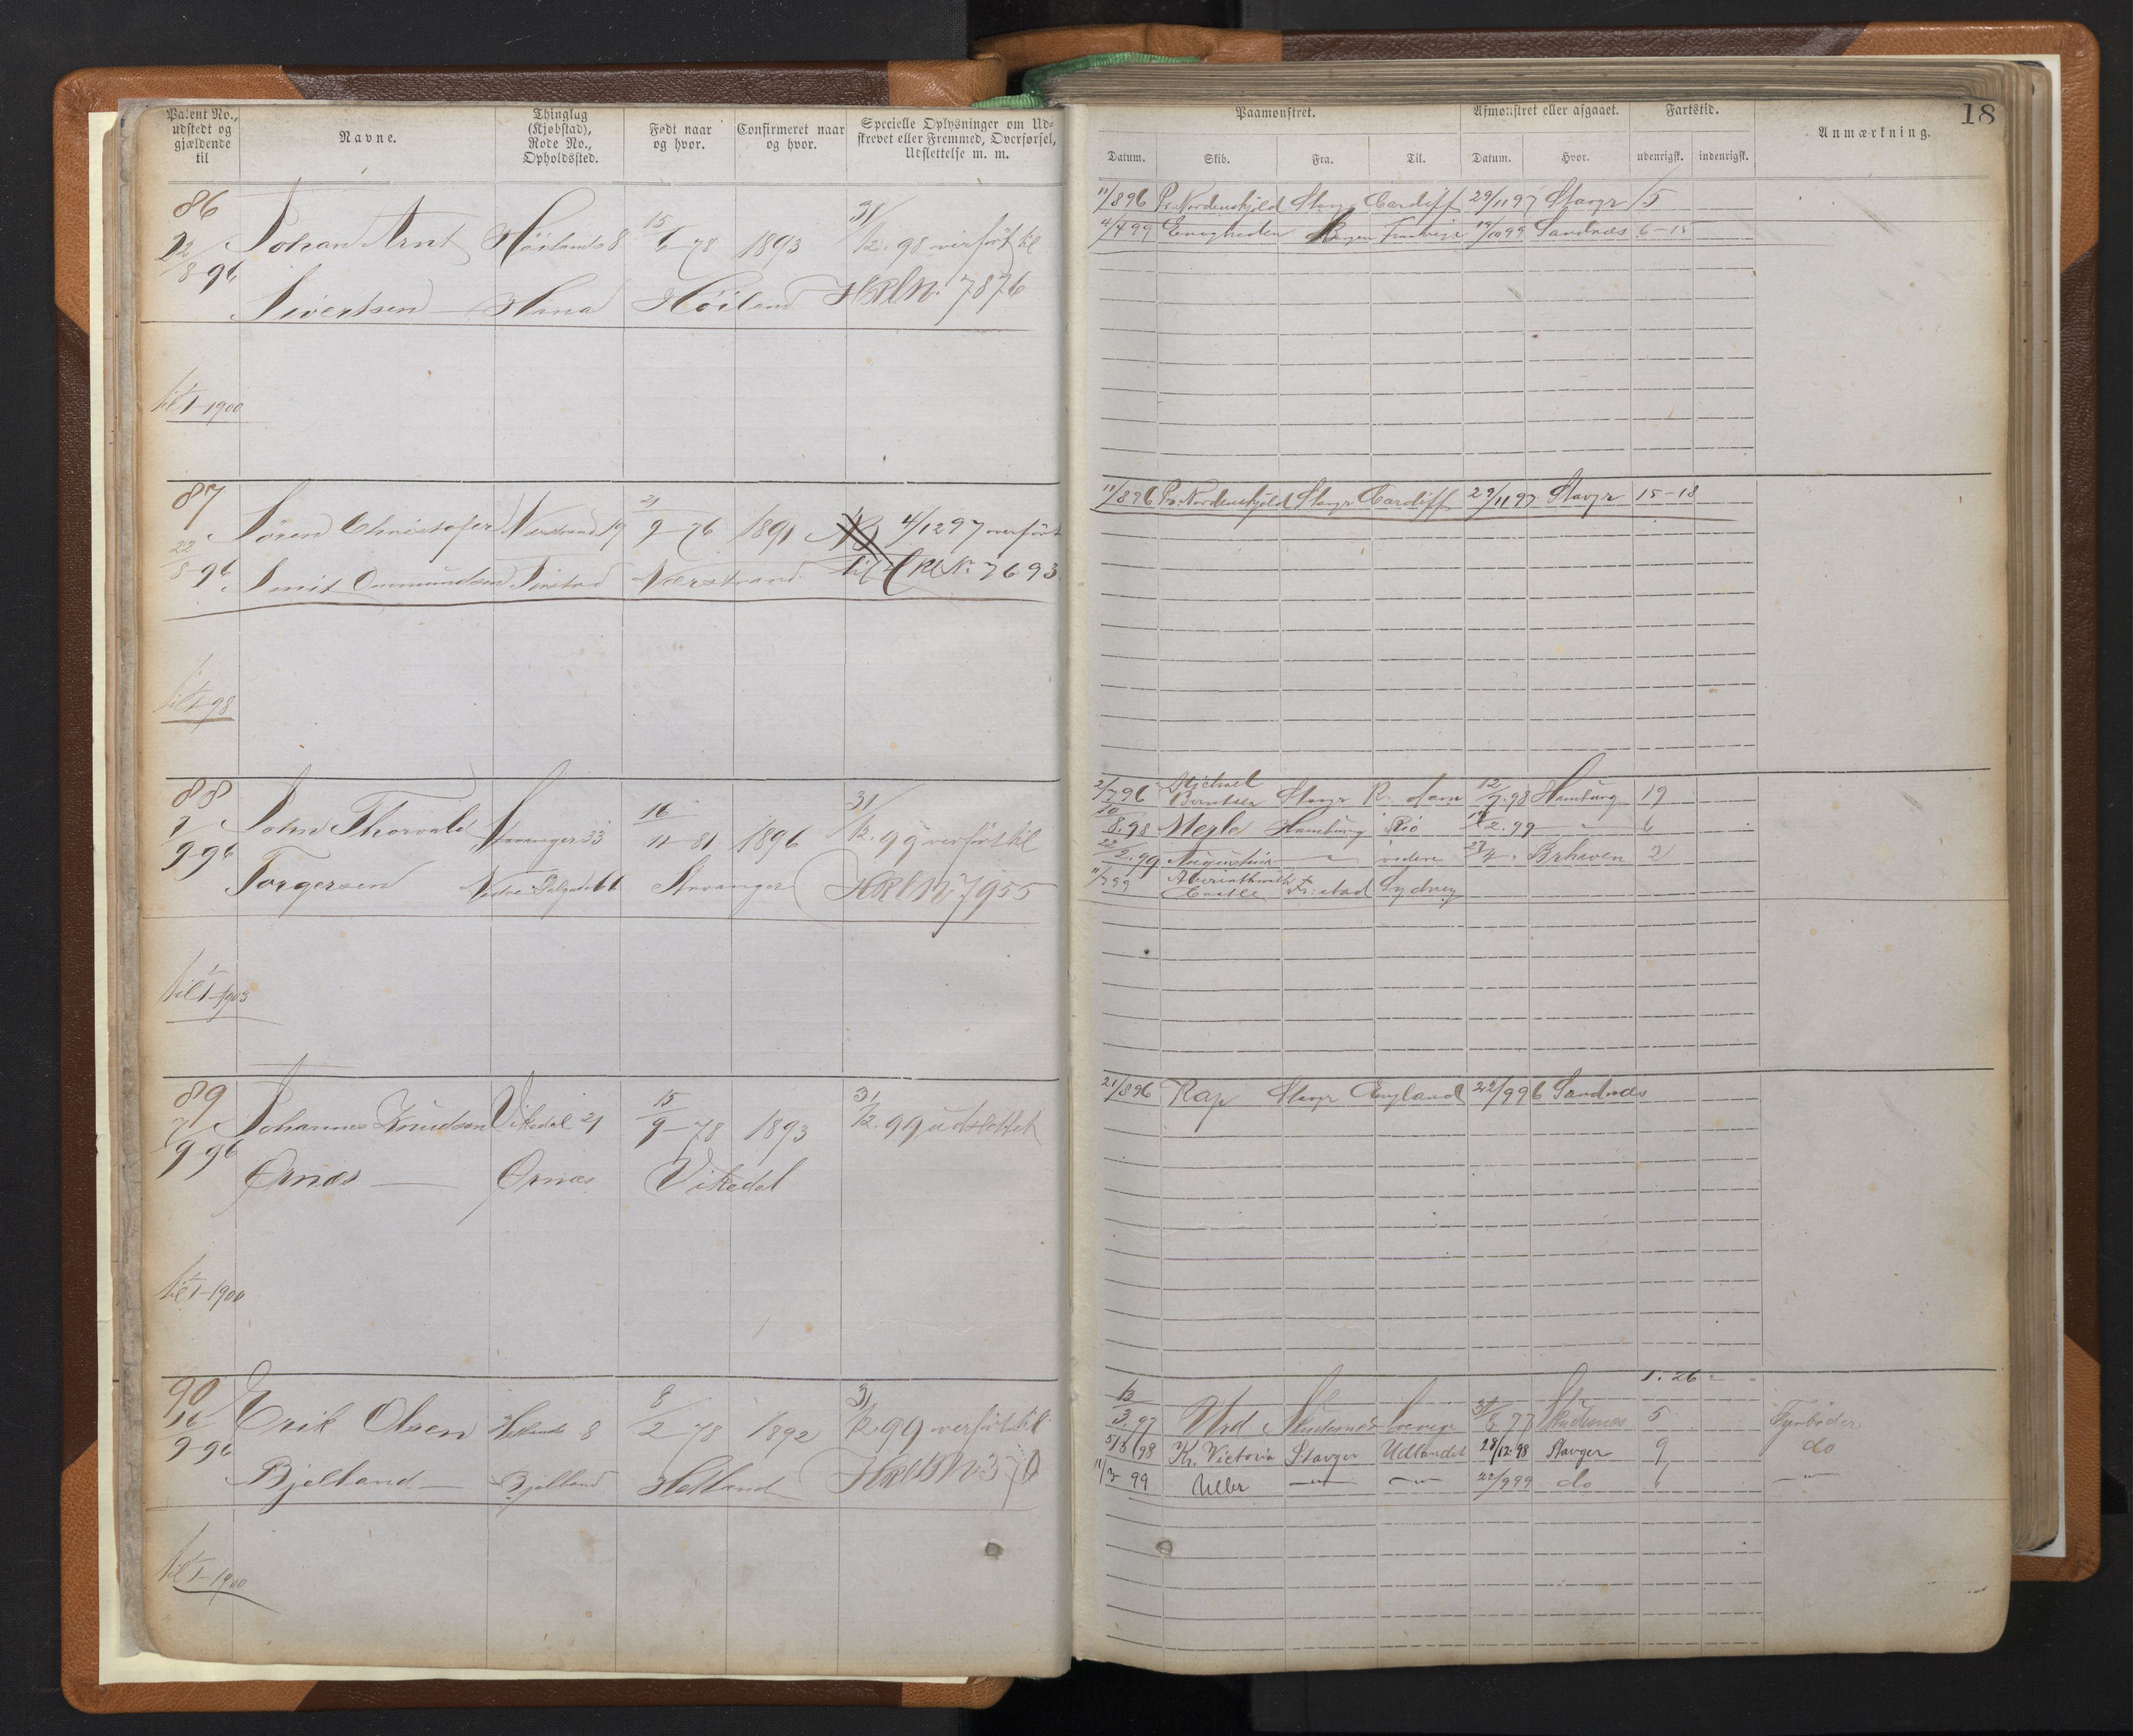 Patent No., udstedt og gjældende til
Navne.
Thinglag (Kjøbstad), Rode No., Opholdssted.
Født naar og hvor.
Confirmeret naar og hvor.
Specielle Oplysninger om Udskrevet eller Fremmed, Overførsel, Udslettelse m. m.
86
22/8 96
Johan Arnt
Höilands 8
15/6 78
1893
31/12. 98 overfört til
Sivertsen
Hana
Höiland
HRlN. 7876
til 1/1 1900
87
22/8 96
Sören Christofer
Nærstrand 19
21/9 76
1891
4/12 97 overfört
Smit Ommundsen
Nærstrand
til Rl N. 7693
til 1/1 98
88
1/9 96
John Thorvald
Stavanger 33
16/11 81
1896
31/12. 99 overfört til
Torgersen
Stavanger
HRlN 7955
til 1/1 1903
89
7/9 96
Johannes Knudsen
Vikedal 21
15/9 78
1893
31/12. 99 udslettet
Ørnæs
Ørnæs
Vikedal
til 1/1 1900
90
16/9 96
Erik Olsen
Hetlands 8
8/2 78
1892
31/12 99 overfört til
Bjelland
Bjelland
Hetland
til 1/1 1900
18
Paamønstret.
Afmønstret eller afgaaet.
Fartstid.
Anmærkning.
Datum.
Skib.
Fra.
Til.
Datum.
Hvor.
udenrigsk.
indenrigsk.
11/8 96 Pr. Nordenskjold Stavgr Cardiff 29/11 97 Stavgr 15
4/4 99 Enigheden Bergen 14/10 99 Sandnæs 6-15
11/8 96 Pr. Nordenskjold Stavgr Cardiff 29/11 97 Stavgr 15-18
2/7 96 Michael Berntsen Stavgr R. dam 12/7. 98 Hamburg 19
10/8. 98 Hamburg Rio 2. 99 " 6
22/2. 99 Augustina " videre 27/4 " Brhaven 2
11/7 99 Castle Fr:stad Sydney
21/8 96 Rap Stavgr England 22/9 96 Sandnæs
1. 26
12/3. 97 Urd Skudesnæs Sverige 31/8 97 Skudesnæs 5 Fyrböder
5/8 98 Kr. Victoria Stavger Udlandet 28/12 98 Stavger 9 do
11/3 99 Uller " " 22/9 99 do 6 "